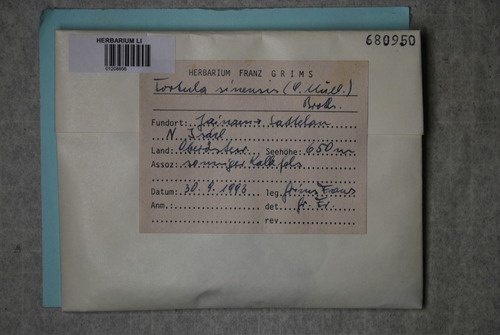 HERBARIUM LI
680950
HERBARIUM FRANZ GRIMS
Tortula sinensis (C. Müll.)
Broth.
Fundort: Jainzen Sattelau
N. Ischl
Land: Oberösterr. Seehöhe: 650 m
Assoz: sonniger Kalkfels
Datum: 30.9.1993 leg. Grims Franz
Anm.: det. Gr. Fr.
rev.